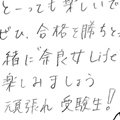 とーっても楽しいで
ぜひ、合格を勝ちと
緒に奈良女Life
楽しみましょう
頑張れ 受験生!